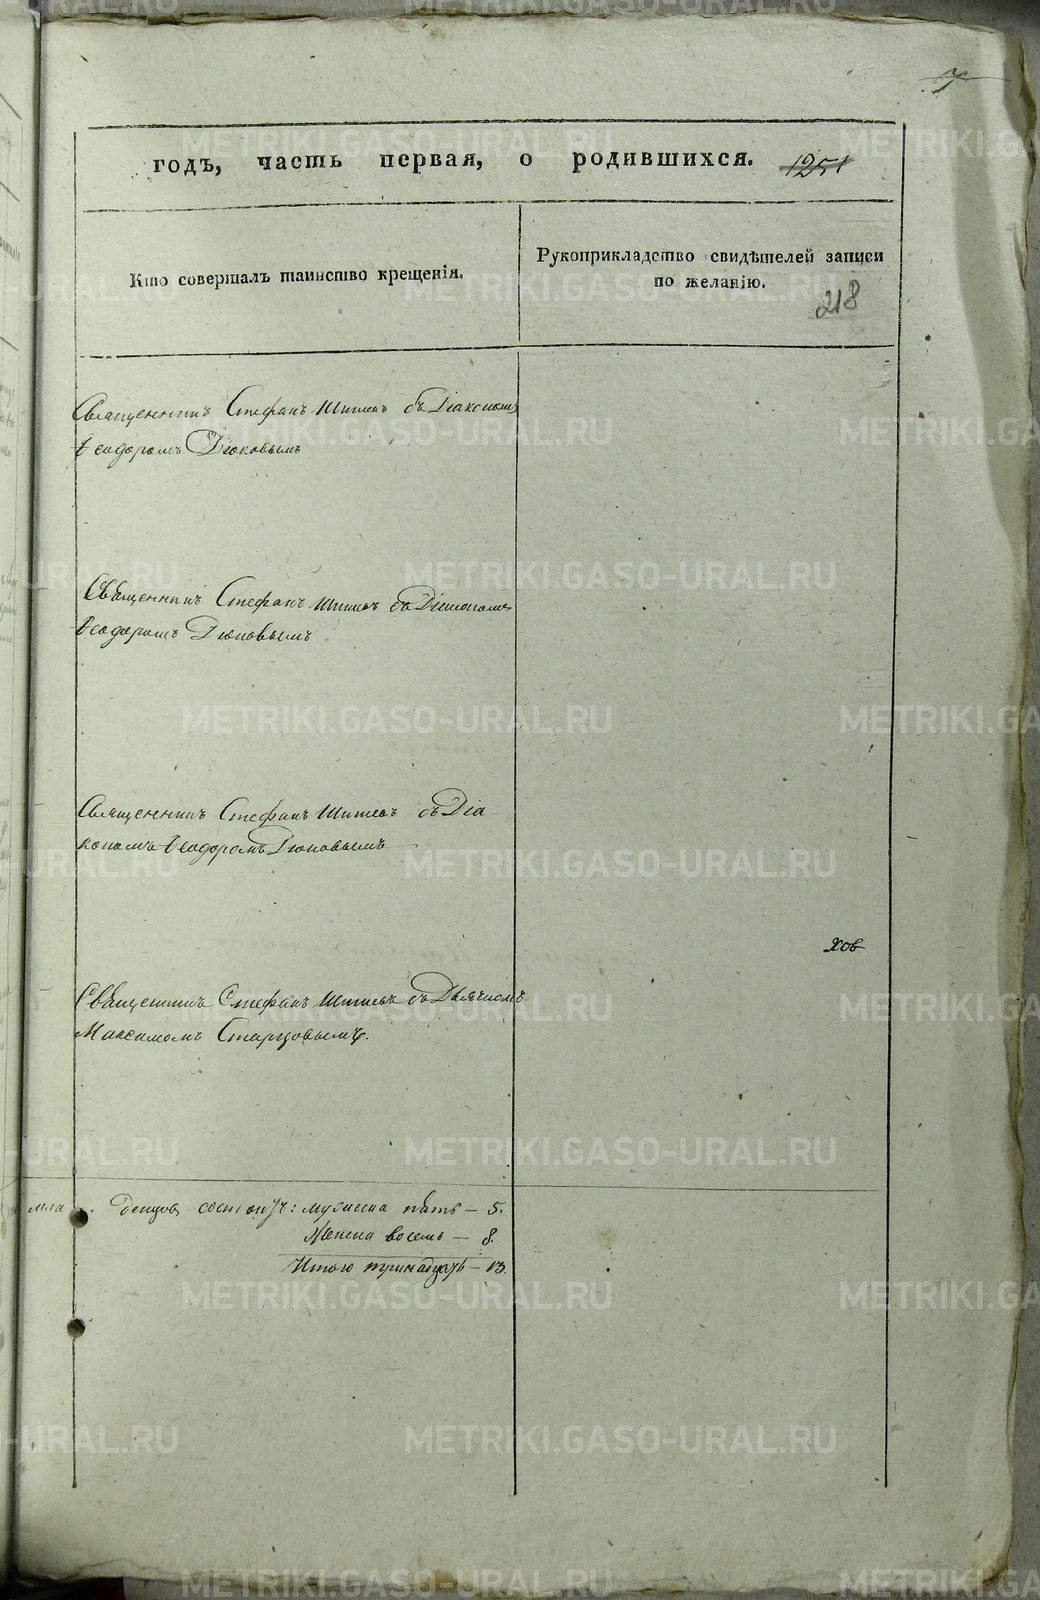 7
годъ, часть первая, о родившихся. 1251
Кто совершалъ таинство крещенія.
Рукоприкладство свидѣтелей записи
по желанію.
218
Священникъ Стефанъ Шишевъ съ Діакономъ
Ѳеодоромъ Дюковымъ
Священникъ Стефанъ Шишевъ съ Діакономъ
Ѳеодоромъ Дюковымъ
Священникъ Стефанъ Шишевъ съ Діа-
кономъ Ѳеодоромъ Дюковымъ
хов
Священникъ Стефанъ Шишевъ съ Дьячкомъ
Максимомъ Старцовымъ.
мужеска пять — 5.
Женска восемь — 8.
Итого тринадцать — 13.
METRIKI.GASO-URAL.RU